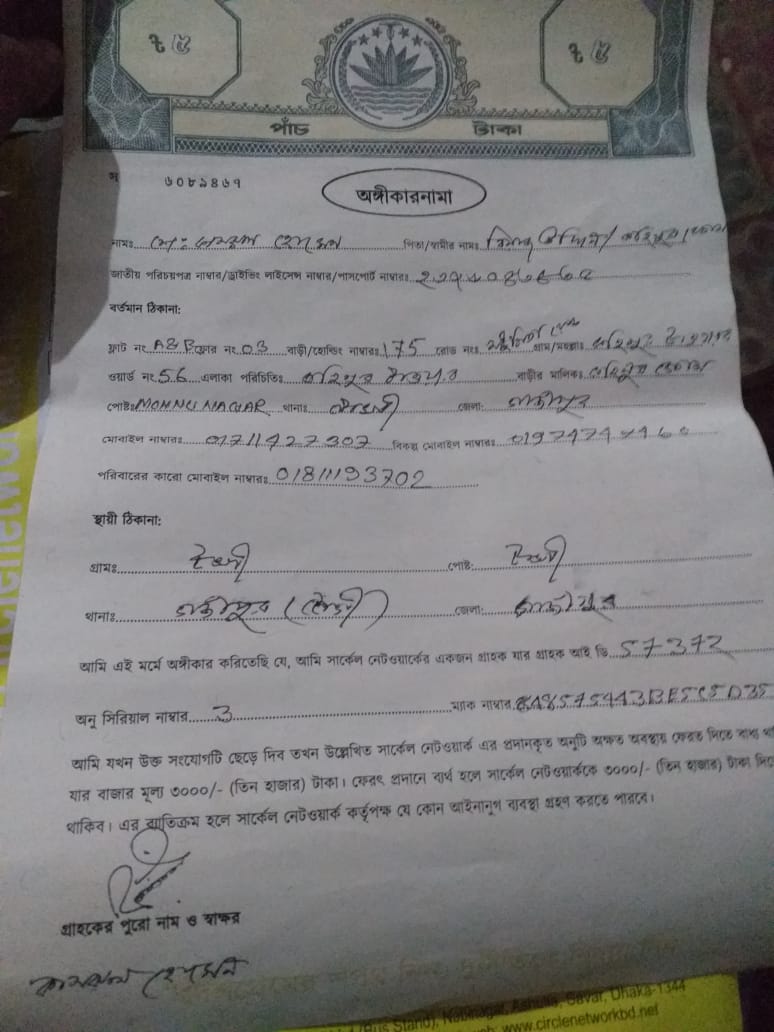 ৳ ৫ ৳ ৫
পাঁচ টাকা
৬০৮৯৪৬৭
অঙ্গীকারনামা
নামঃ মোঃ কামরুল হোসেন পিতা/স্বামীর নামঃ
জাতীয় পরিচয়পত্র নাম্বার/ড্রাইভিং লাইসেন্স নাম্বার/পাসপোর্ট নাম্বারঃ
বর্তমান ঠিকানা:
ফ্লাট নং A&B ফ্লোর নং 03 বাড়ী/হোল্ডিং নাম্বারঃ 175 রোড নংঃ গ্রাম/মহল্লাঃ
ওয়ার্ড নং 56 এলাকা পরিচিতিঃ বাড়ীর মালিকঃ
পোষ্টঃ MONNU NAGAR থানাঃ টঙ্গী জেলাঃ গাজীপুর
মোবাইল নাম্বারঃ 01711427307 বিকল্প মোবাইল নাম্বারঃ
পরিবারের কারো মোবাইল নাম্বারঃ 01811193702
স্থায়ী ঠিকানা:
গ্রামঃ টঙ্গী পোষ্ট: টঙ্গী
থানাঃ গাজীপুর (টঙ্গী) জেলা: গাজীপুর
আমি এই মর্মে অঙ্গীকার করিতেছি যে, আমি সার্কেল নেটওয়ার্কের একজন গ্রাহক যার গ্রাহক আই ডি 57372
অনু সিরিয়াল নাম্বার 3 ম্যাক নাম্বার
আমি যখন উক্ত সংযোগটি ছেড়ে দিব তখন উল্লেখিত সার্কেল নেটওয়ার্ক এর প্রদানকৃত অনুটি অক্ষত অবস্থায় ফেরত দিতে বাধ্য
যার বাজার মূল্য ৩০০০/- (তিন হাজার) টাকা। ফেরৎ প্রদানে ব্যর্থ হলে সার্কেল নেটওয়ার্ককে ৩০০০/- (তিন হাজার) টাকা
থাকিব। এর ব্যতিক্রম হলে সার্কেল নেটওয়ার্ক কর্তৃপক্ষ যে কোন আইনানুগ ব্যবস্থা গ্রহণ করতে পারবে।
গ্রাহকের পুরো নাম ও স্বাক্ষর
কামরুল হোসেন
(Bus Stand), Nabinagar, Ashulia, Savar, Dhaka-1344
www.circlenetworkbd.net